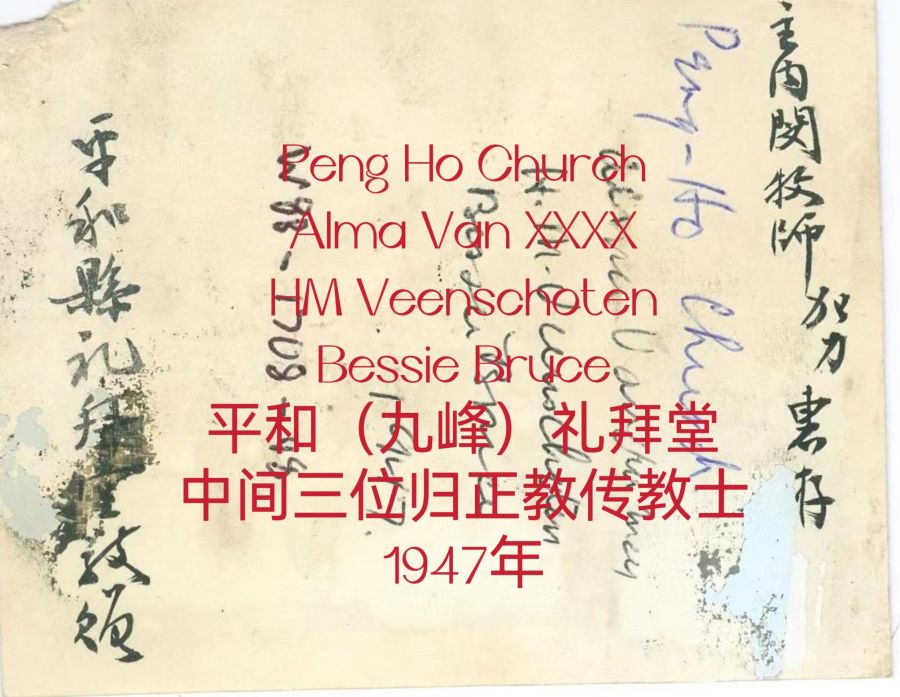 Peng Ho Church
Alma Van XXXX
HM Veenschoten
Bessie Bruce
平和（九峰）礼拜堂
中间三位归正教传教士
1947年
主内閔牧師加力惠存
Peng-Ho Church
H. M. Veenschoten
1947.
平和縣礼拜堂致贈